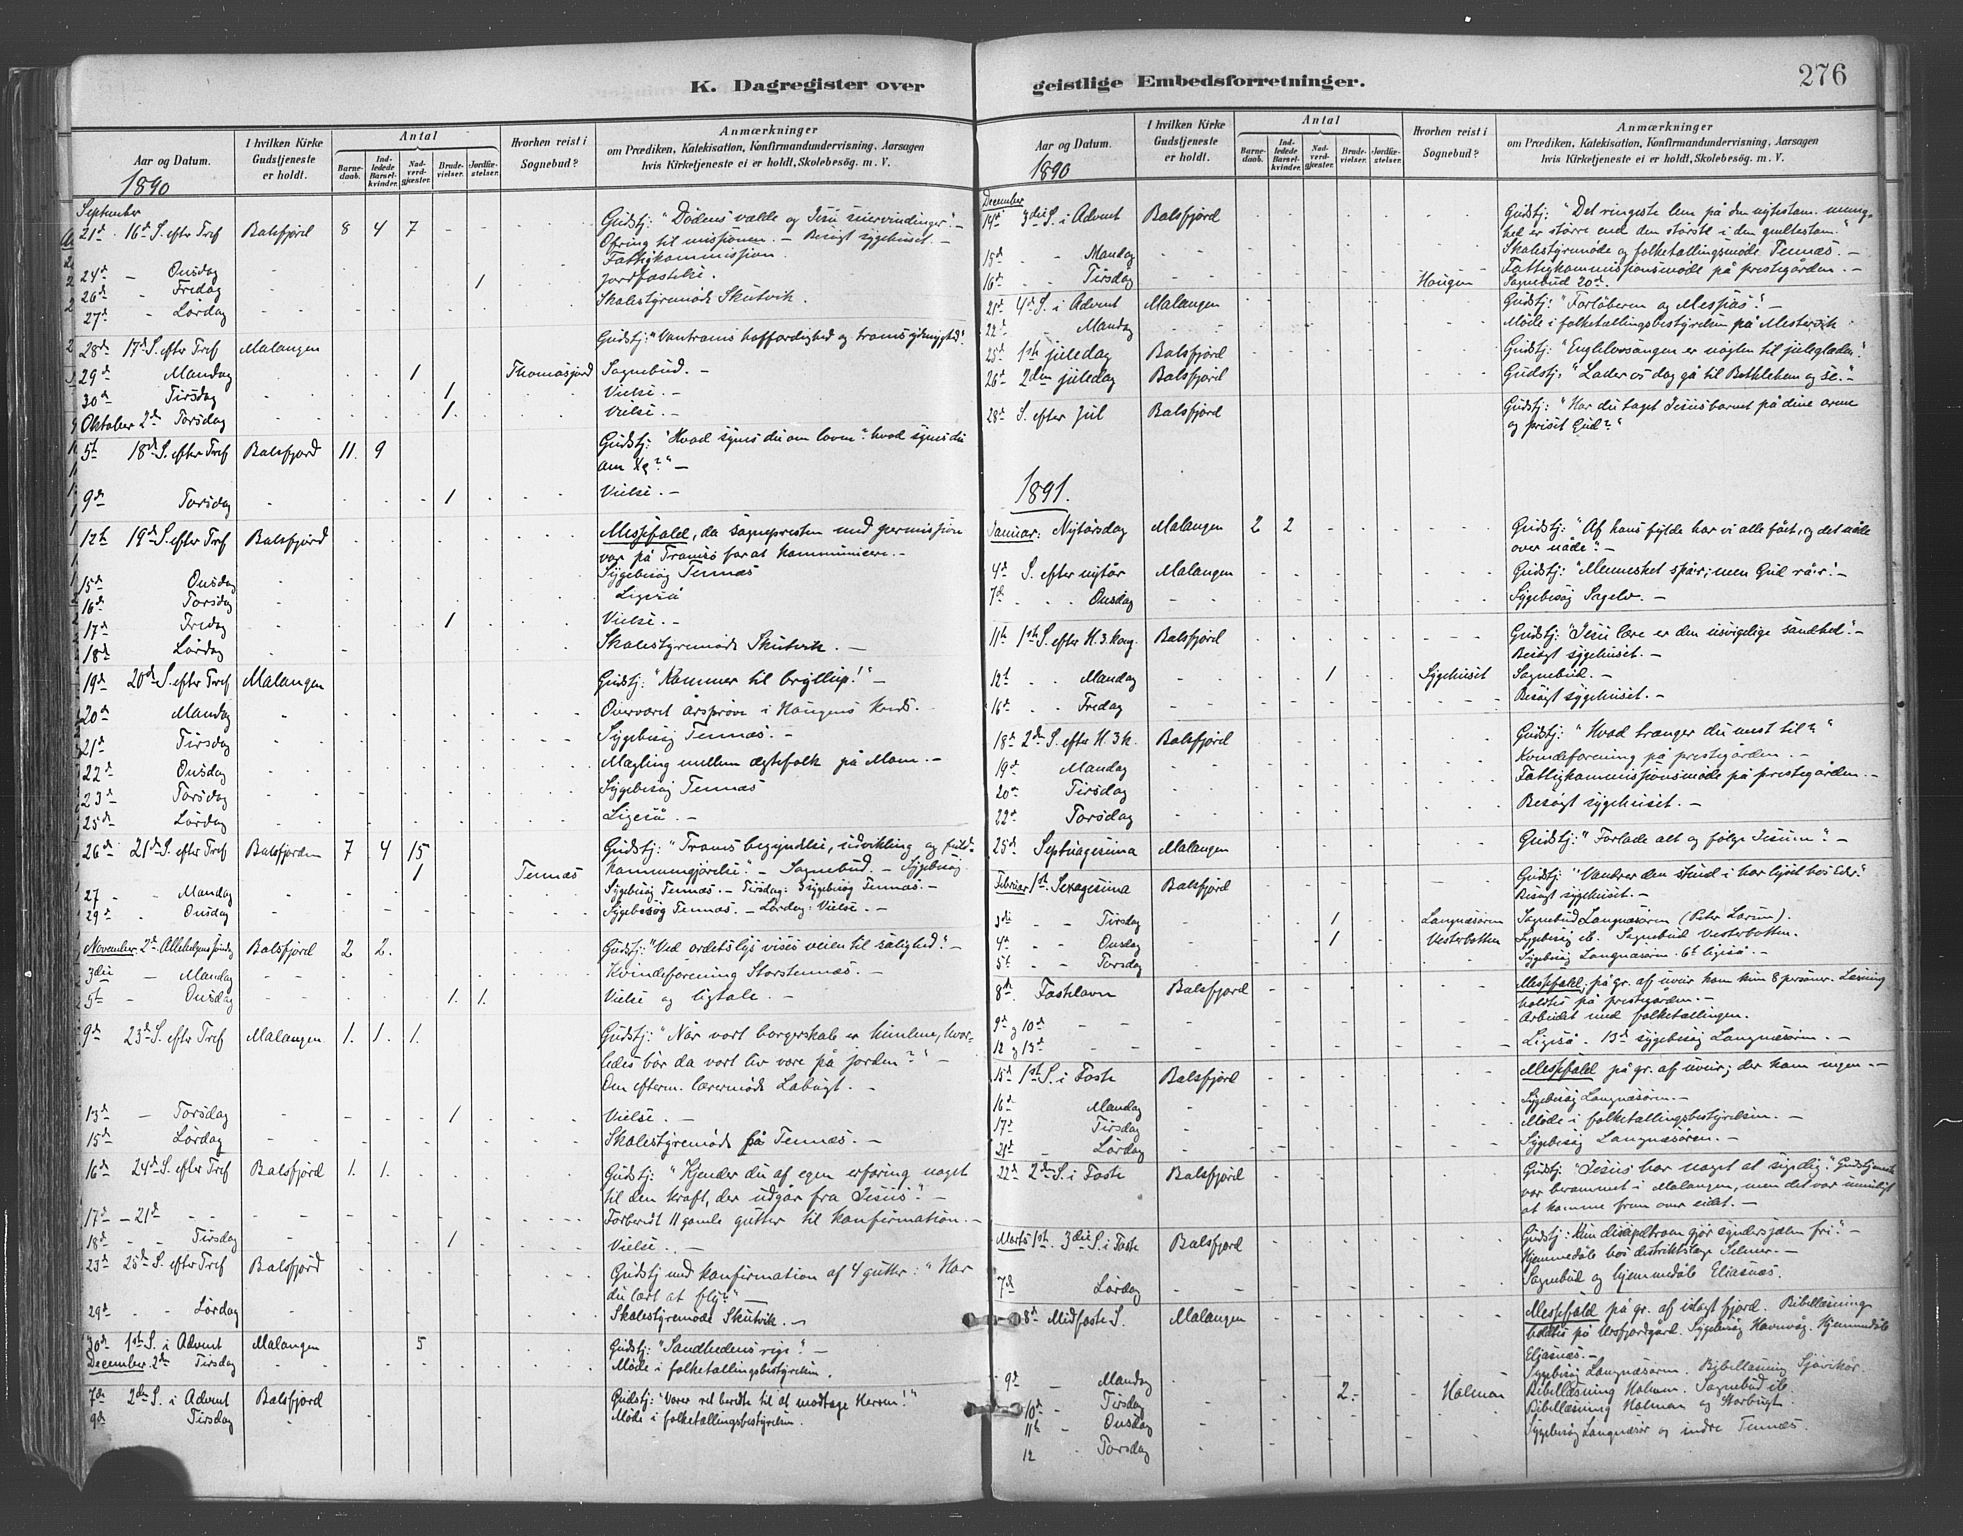 K. Dagregister over
Aar og Datum.
1890
I hvilken Kirke Gudstjeneste er holdt.
Antal
Barnedaab.
Indledede Barselkvinder.
Nadverdgjæster.
Brudevielser.
Jordfæstelser.
Hvorhen reist i Sognebud?
Anmærkninger
om Prædiken, Katekisation, Konfirmandundervisning, Aarsagen
hvis Kirketjeneste ei er holdt, Skolebesøg. m. V.
September
21de 16de S. efter Tref Balsfjord 8 4 7 - - Gudstj: "Dødens vælde og Jesu seiervindinger". -
Ofring til missionen. - Besøgt sygehuset. -
24de - Onsdag Fattigkommission.
26de - Fredag 1 Jordfæstelse.
27de - Lørdag Skolestyremøde Skutvik. -
28de 17de S. efter Tref Malangen Gudstj: "Vantroens hoffærdighed og troens ydmyghed".
29de Mandag 1 Thomasjord Sognebud. -
30te Tirsdag 1 Vielse. -
Oktober 2de Torsdag 1. Vielse. -
5te 18de S. efter Tref Balsfjord 11. 9 Gudstj: "Hvad synes du om loven? hvad synes du
om Xs?" -
9de Torsdag 1 Vielse. -
12te 19de S. efter Tref Balsfjord Messefald, da sognepresten med permission
var på Tromsø for at kommunicere. -
15de Onsdag Sygebesøg Tennæs
16de Torsdag Ligeså
17de Fredag 1 Vielse. -
18de Lørdag Skolestyremøde Skutvik. -
19de 20de S. efter Tref Malangen Gudstj: "Kommer til bryllup!" -
20de Mandag Overværet årsprøve i Haugens kreds.
21de Tirsdag Sygebesøg Tennæs. -
22de Onsdag Mægling mellem ægtefolk på Moen. -
23de Torsdag Sygebesøg Tennæs
25de Lørdag Ligeså. -
26de 21de S. efter Tref Balsfjorden 7 4 15 Gudstj: "Troens begyndelse, udvikling og fuld-
1 Tennæs kommengjørelse". - Sognebud. - Sygebesøg
27 - Mandag Sygebesøg Tennæs. - Tirsdag: Sygebesøg Tennæs. -
29de - Onsdag Sygebesøg Tennæs. - Lørdag: Vielse. -
November 2de Allehelgens søndag Balsfjord 2 2. Gudstj: "Ved ordets lys vises veien til salighed". -
3die - Mandag Kvindeforening Storstennæs. -
5te - Onsdag 1. 1. Vielse og ligtale. -
9de 23de S. efter Tref Malangen 1. 1. 1. Gudstj: "Når vort borgerskab er himlene, hvor-
ledes bør da vort liv være på jorden?" -
Om efterm. lærermøde Labugt. -
13de - Torsdag 1 Vielse. -
15de Lørdag Skolestyremøde på Tennæs. -
16de 24de S. efter Tref Balsfjord 1. 1. Gudstj: "Kjender du af egen erfaring noget
til den kraft, der udgår fra Jesus". -
17de - 21de Forberedt 11 gamle gutter til konfirmation. -
18de - - Tirsdag 1 Vielse. -
23de 25de S. efter Tref Balsfjord Gudstj med konfirmation af 4 gutter: "Har
du lært at fly?" -
29de Lørdag Skolestyremøde Skutvik. -
30de 1ste S. i Advent Malangen 5 Gudstj: "Sandhedens rige". -
December 2de Tirsdag Møde i folketællingsbestyrelsen.
7de 2den S. i Advent Balsfjord Gudstj: "Vorer vel beredte til at modtage Herren!"
9de Tirsdag Møde i folketællingsbestyrelsen.
geistlige Embedsforretninger.
276
Aar og Datum.
1890
I hvilken Kirke Gudstjeneste er holdt.
Antal
Barnedaab.
Indledede Barselkvinder.
Nadverdgjæster.
Brudevielser.
Jordfæstelser.
Hvorhen reist i Sognebud?
Anmærkninger
om Prædiken, Katekisation, Konfirmandundervisning, Aarsagen
hvis Kirketjeneste ei er holdt, Skolebesøg. m. V.
December
14de 3die S. i Advent Balsfjord Gudstj: "Det ringeste lem på den nytestam. menig-
hed er større end den største i den gmltestam."
15de - - Mandag Skolestyremøde og folketællingsmøde Tennæs. -
16de - - Tirsdag Fattigkommissionsmøde på prestegården. -
Haugen Sognebud 20de. -
21de 4de S. i Advent Malangen Gudstj: "Forløberen og Messias". -
22de - Mandag Møde i folketællingsbestyrelsen på Mestervik.
25de 1ste juledag Balsfjord Gudstj: "Englelovsangen er nøglen til juleglæden".
26de 2den juledag Balsfjord Gudstj: "Lader os dog gå til Bethlehem og se". -
28de S. efter Jul Balsfjord Gudstj: "Har du taget Jesusbarnet på dine arme
og priset Gud?"
1891.
Januar: Nytårsdag Malangen 2 2 Gudstj: "Af hans fylde har vi alle fået, og det nåde
over nåde". -
4de S. efter nytår Malangen Gudstj: "Mennesket spår; men Gud rår". -
7de - - Onsdag Sygebesøg Sagelv. -
11te 1ste S. efter H. 3 kong. Balsfjord Gudstj: "Jesu lære er den usvigelige sandhed". -
Besøgt sygehuset. -
12te - - Mandag 1 Sygehuset Sognebud. -
16de - - Fredag Besøgt sygehuset. -
18de 2den S. efter H. 3 k. Balsfjord Gudstj: "Hvad trænger du mest til?"
19de Mandag Kvindeforening på prestegården. -
20de Tirsdag Fattigkommissionsmøde på prestegården. -
22de Torsdag Besøgt sygehuset. -
25de Septuagesima Malangen Gudstj: "Forlade alt og følge Jesum". -
Februar 1ste Sexagesima Balsfjord Gudstj: "Vandrer den stund i har lyset hos Eder".
Besøgt sygehuset. -
3die - - Tirsdag 1 Langnæsøren Sognebud Langnæsøren (Peter Larsen).
4de - - Onsdag 1 Vesterbotten Sygebesøg ib. Sognebud Vesterbotten.
5te - - Torsdag Sygebesøg Langnæsøren. 6te ligeså. -
8de Fastelavn Balsfjord Messefald, på gr. af uveir kom kun 8 personer. Læsning
holdtes på prestegården. -
9de og 10de Arbeidet med folketællingen.
12 og 13de Ligeså. 13de sygebesøg Langnæsøren. -
15de 1ste S. i Faste Balsfjord Messefald på gr. af uveir; der kom ingen. -
16de Mandag Sygebesøg Langnæsøren. -
17de Tirsdag Møde i folketællingsbestyrelsen. -
21de - Lørdag Sygebesøg Langnæsøren. -
22de 2den S. i Faste Balsfjord Gudstj: "Jesus har noget at sige dig". Gudstjeneste
var berammet i Malangen, men det var umuligt
at komme frem over eidet. -
Marts 1ste 3die S. i Faste Balsfjord Gudstj: "Kun discipeltroen gjør syndersjælen fri". -
Hjemmedåb hos distriktslæge Selmer. -
7de Lørdag Sognebud og hjemmedåb Eliasnæs.
8de Midfaste S. Malangen Messefald på gr. af islagt fjord. Bibellæsning
holdtes på Ursfjordgård. Sygebesøg Havnvåg. Hjemmedåb
Eljasnæs. -
9de - Mandag Sygebesøg Langnæsøren. Bibellæsning Sjøvikør.
10de - Tirsdag 2 Holmen Bibellæsning Holmen. Sognebud ib.
11te Onsdag Bibellæsning Holmen og Storbugt.
12 Torsdag Sygebesøg Langnæsør og indre Tennæs.